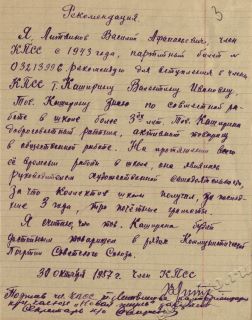 Рекомендация
3
Я, Литвинов Василий Афанасьевич, член
КПСС с 1943 года, партийный билет №
рекомендую для вступления в члены
КПСС т. Каширину Валентину Ивановну.
Тов. Каширину знаю по совместной ра-
боте в школе более 3х лет. Тов. Каширина
добросовестный работник, активный товарищ
в общественной работе. На протяжении всего
её времени работы в школе, она являлась
руководителем художественной самодеятельности.
За что коллектив школы получил, за послед-
ние 3 года, три почётные грамоты.
Я считаю, что тов. Каширина будет
достойным товарищем в рядах Коммунистической
Партии Советского Союза.
30 октября 1957 г. Член КПСС
Подпись чл. КПСС т. Литвинова